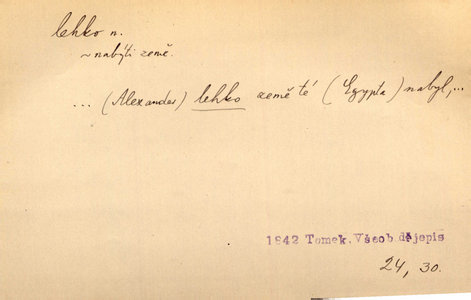 lehko n.
~ nabýti země.
... (Alexander) lehko země té (Egypta) nabyl,...
1842 Tomek. Všeob. dějepis
24, 30.